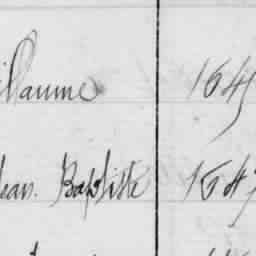 illaume 1645
Jean. Baptiste 1647